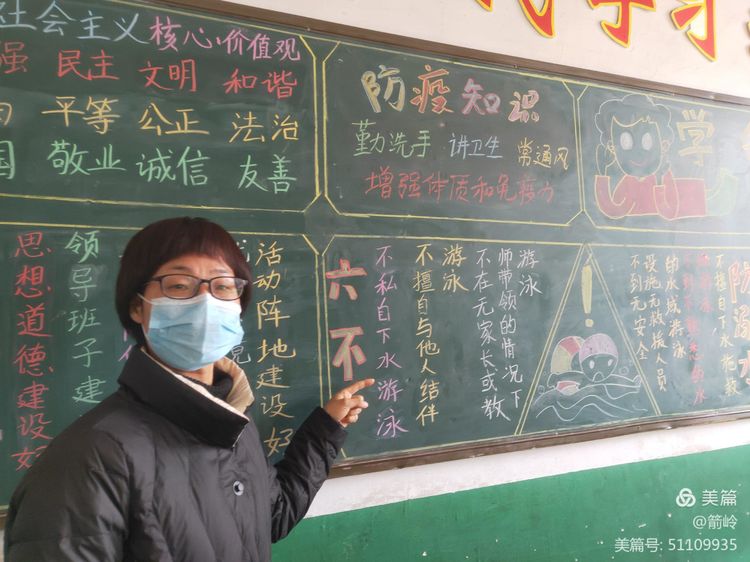 学习
社会主义核心价值观
强 民主 文明 和谐
平等 公正 法治
国 敬业 诚信 友善
防疫知识
勤洗手 讲卫生 常通风
增强体质和免疫力
学
思想道德建设好
领导班子建
活动阵地建设好
六不
不私自下水游泳
不擅自与他人结伴
游泳
不在无家长或教
师带领的情况下
游泳
!
不到无安全
设施无救援人员
的水域游泳
不到不熟悉的水
域游泳
不擅自下水施救
防溺水
美篇
@箭岭
美篇号: 51109935